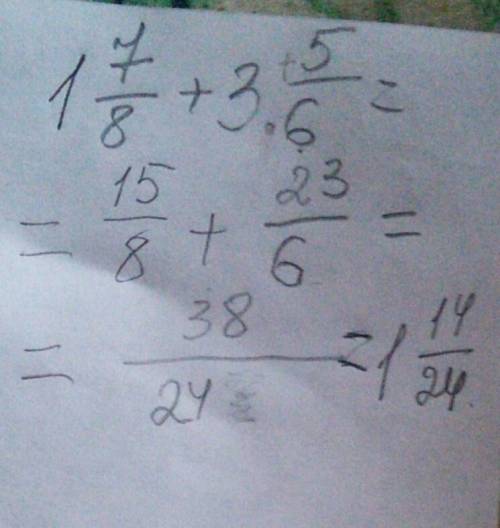 1 7/8 + 3 5/6 =
= 15/8 + 23/6 =
= 38/24 = 1 14/24